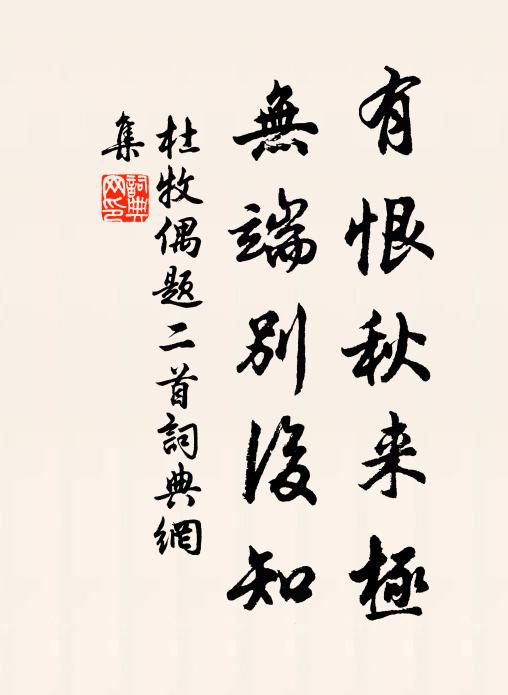 有恨秋来極
無端別後知
杜牧偶题二首詞典網
集
詞典网印